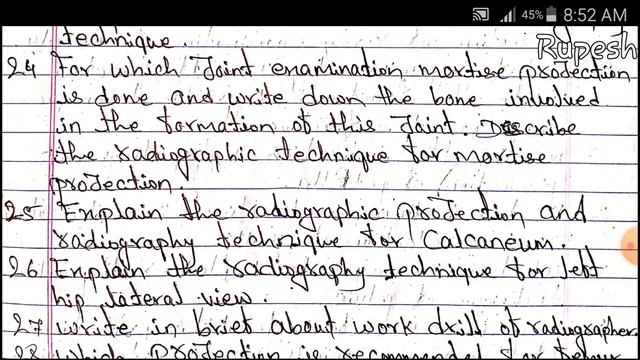 45% 8:52 AM
Rupesh
technique.
24 For which Joint enamination mortise prodection
is done and write down the bone involved
in the formation of this Joint. Describe
the radiographic technique for mortise
proJection.
25 Enplain the radiographic proJection and
radiography technique for Calcaneum.
26 Enplain the radiography technique for left
hip lateral view.
27 write in brief about work drill of radiographer
28 which proJection is recommended for